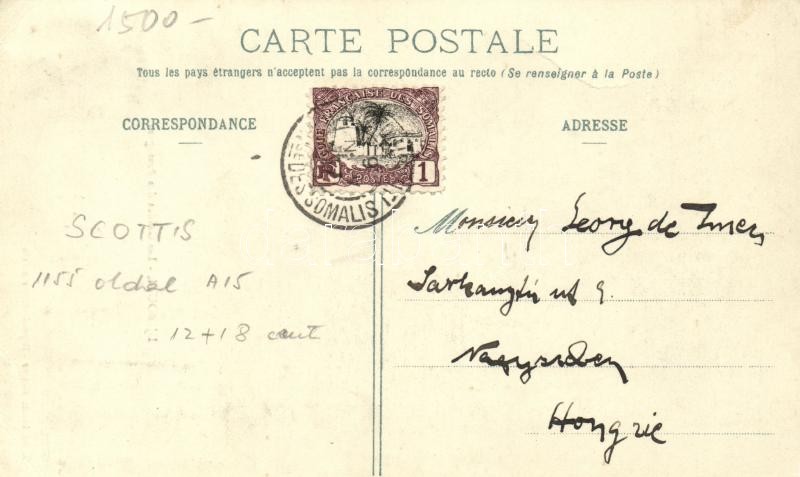 1500-
CARTE POSTALE
Tous les pays étrangers n'acceptent pas la correspondance au recto (Se renseigner à la Poste)
CORRESPONDANCE
ADRESSE
CÔTE FRANÇAISE DES SOMALIS
POSTES
1
DES SOMALIS
Monsieur Georg de
SCOTTIS
1155 oldal A15
12+18 cent
Nagyszeben
Hongrie